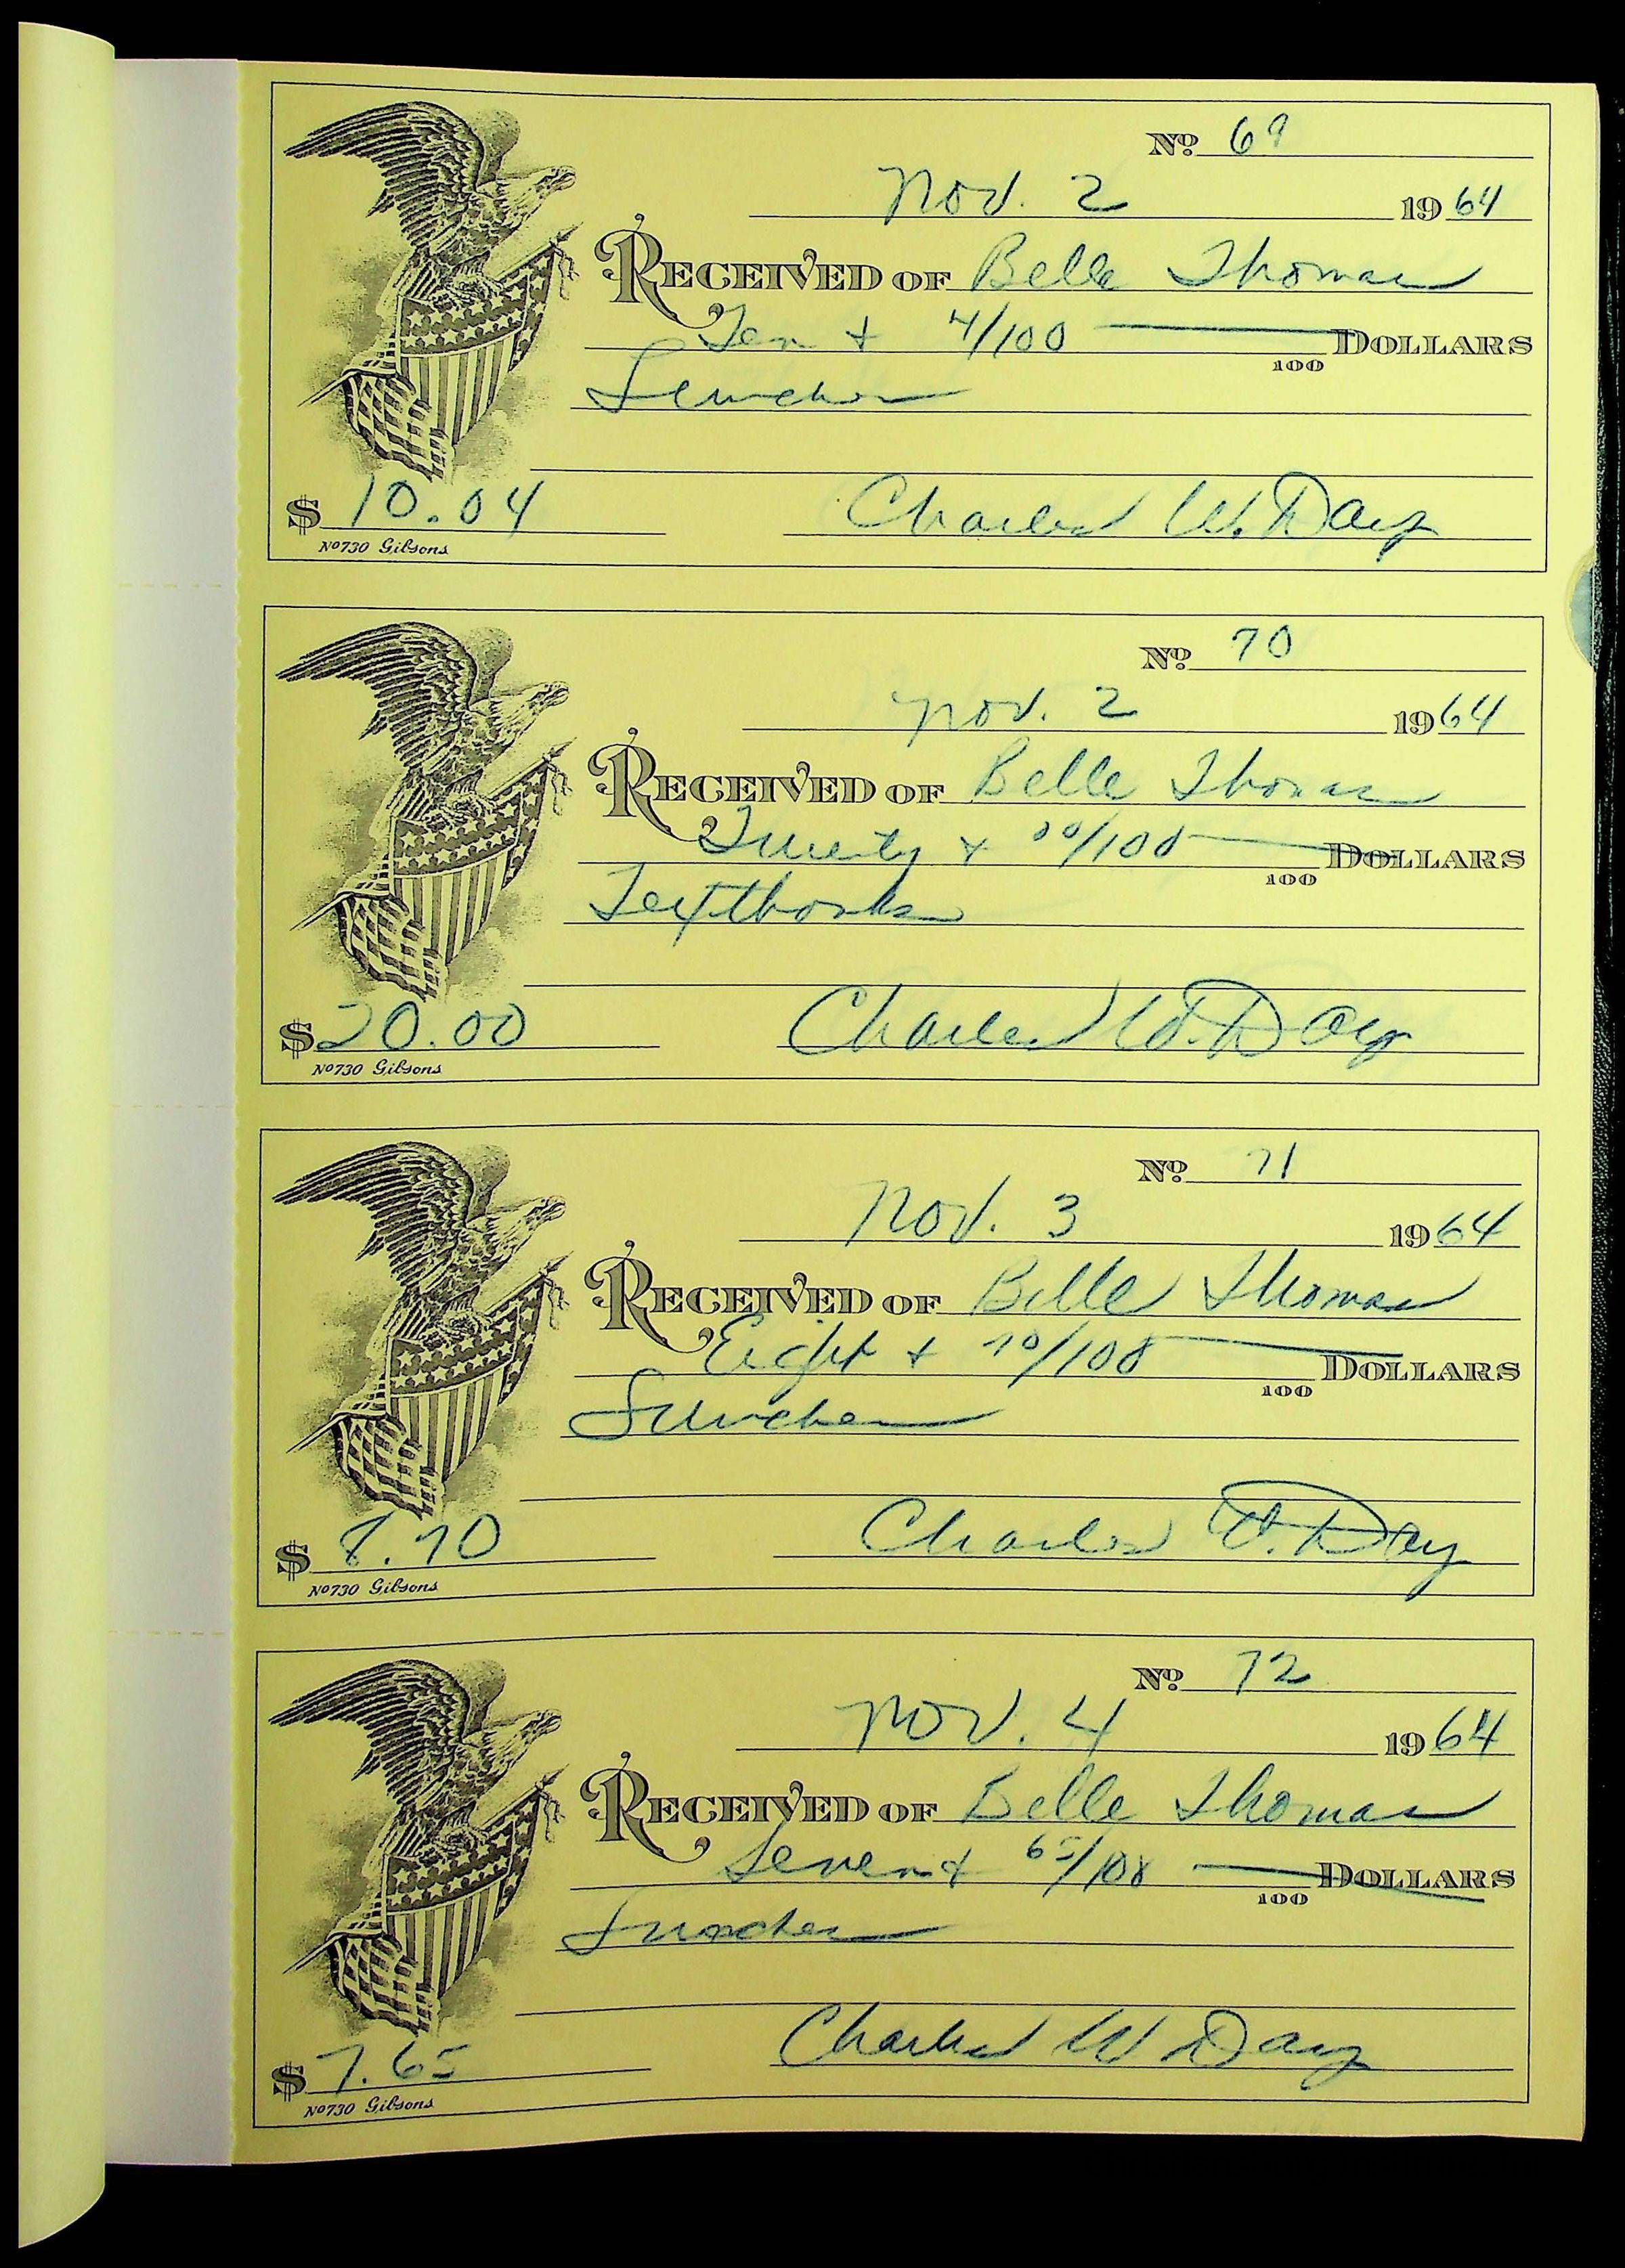 No. 69
Nov. 2 1964
RECEIVED OF Belle Thomas
Ten + 4/100 DOLLARS
100
Lunches
Charles W. Day
$ 10.04
No 730 Gibsons
No. 70
Nov. 2 1964
RECEIVED OF Belle Thomas
Twenty + 00/100 DOLLARS
100
Textbooks
Charles W. Day
$ 20.00
No 730 Gibsons
No. 71
Nov. 3 1964
RECEIVED OF Belle Thomas
Eight + 70/100 DOLLARS
100
Lunches
Charles W. Day
$ 8.70
No 730 Gibsons
No. 72
Nov. 4 1964
RECEIVED OF Belle Thomas
Seven + 65/100 DOLLARS
100
Lunches
Charles W Day
$ 7.65
No 730 Gibsons